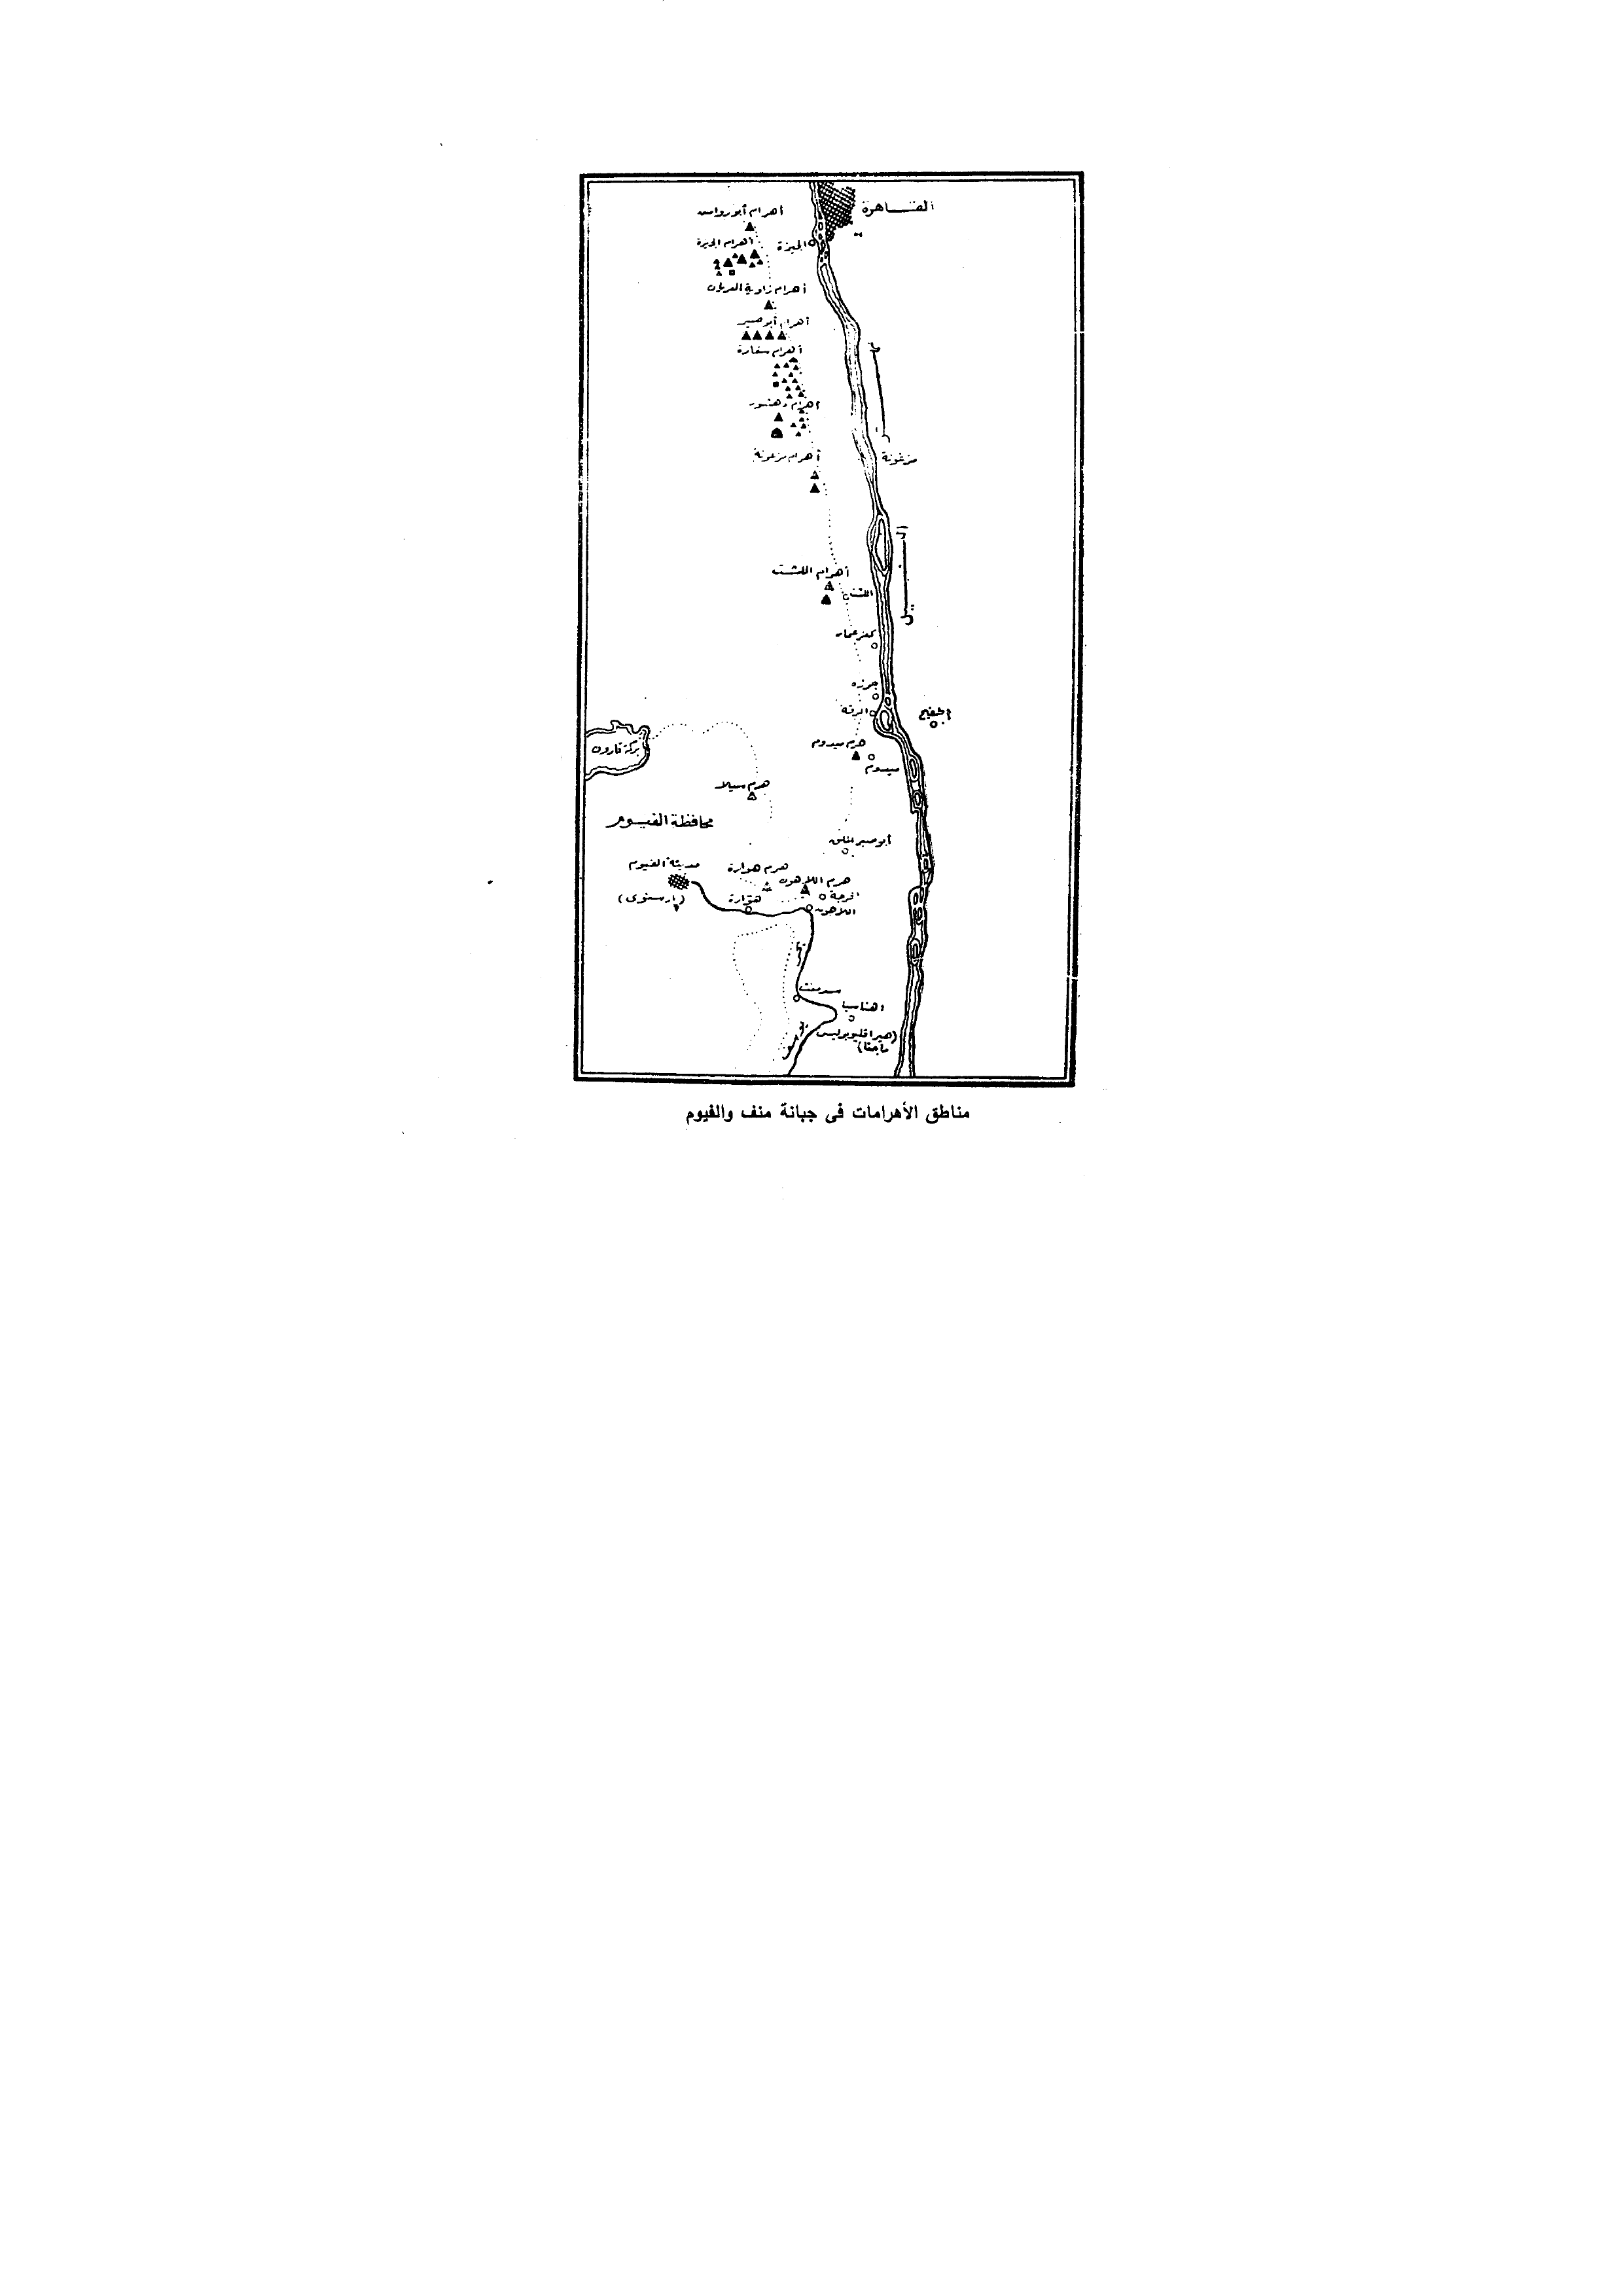 القاهرة
أهرام أبو رواس
أهرام الجيزة
الجيزة
أهرام زاوية العريان
أهرام أبو صير
أهرام سقارة
أهرام دهشور
أهرام مزغونة
مزغونة
النيل
أهرام اللشت
اللشت
كفر عمار
جرزه
الرقة
أطفيح
بركة قارون
هرم ميدوم
ميدوم
هرم سيلا
محافظة الفيوم
أبو صير الملق
مدينة الفيوم
هرم هوارة
هرم اللاهون
(أرسنوى)
هوارة
اللاهون
سدمنت
اهناسيا
(هيراقليوبوليس
ماجنا)
مناطق الأهرامات فى جبانة منف والفيوم